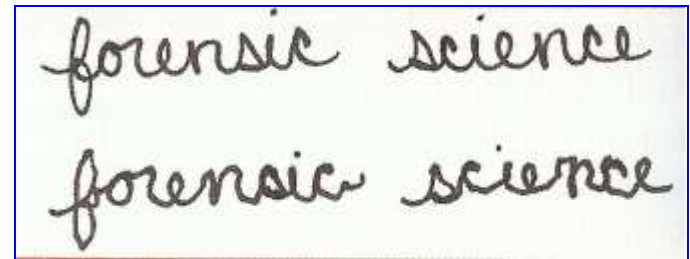 forensic science
forensic science